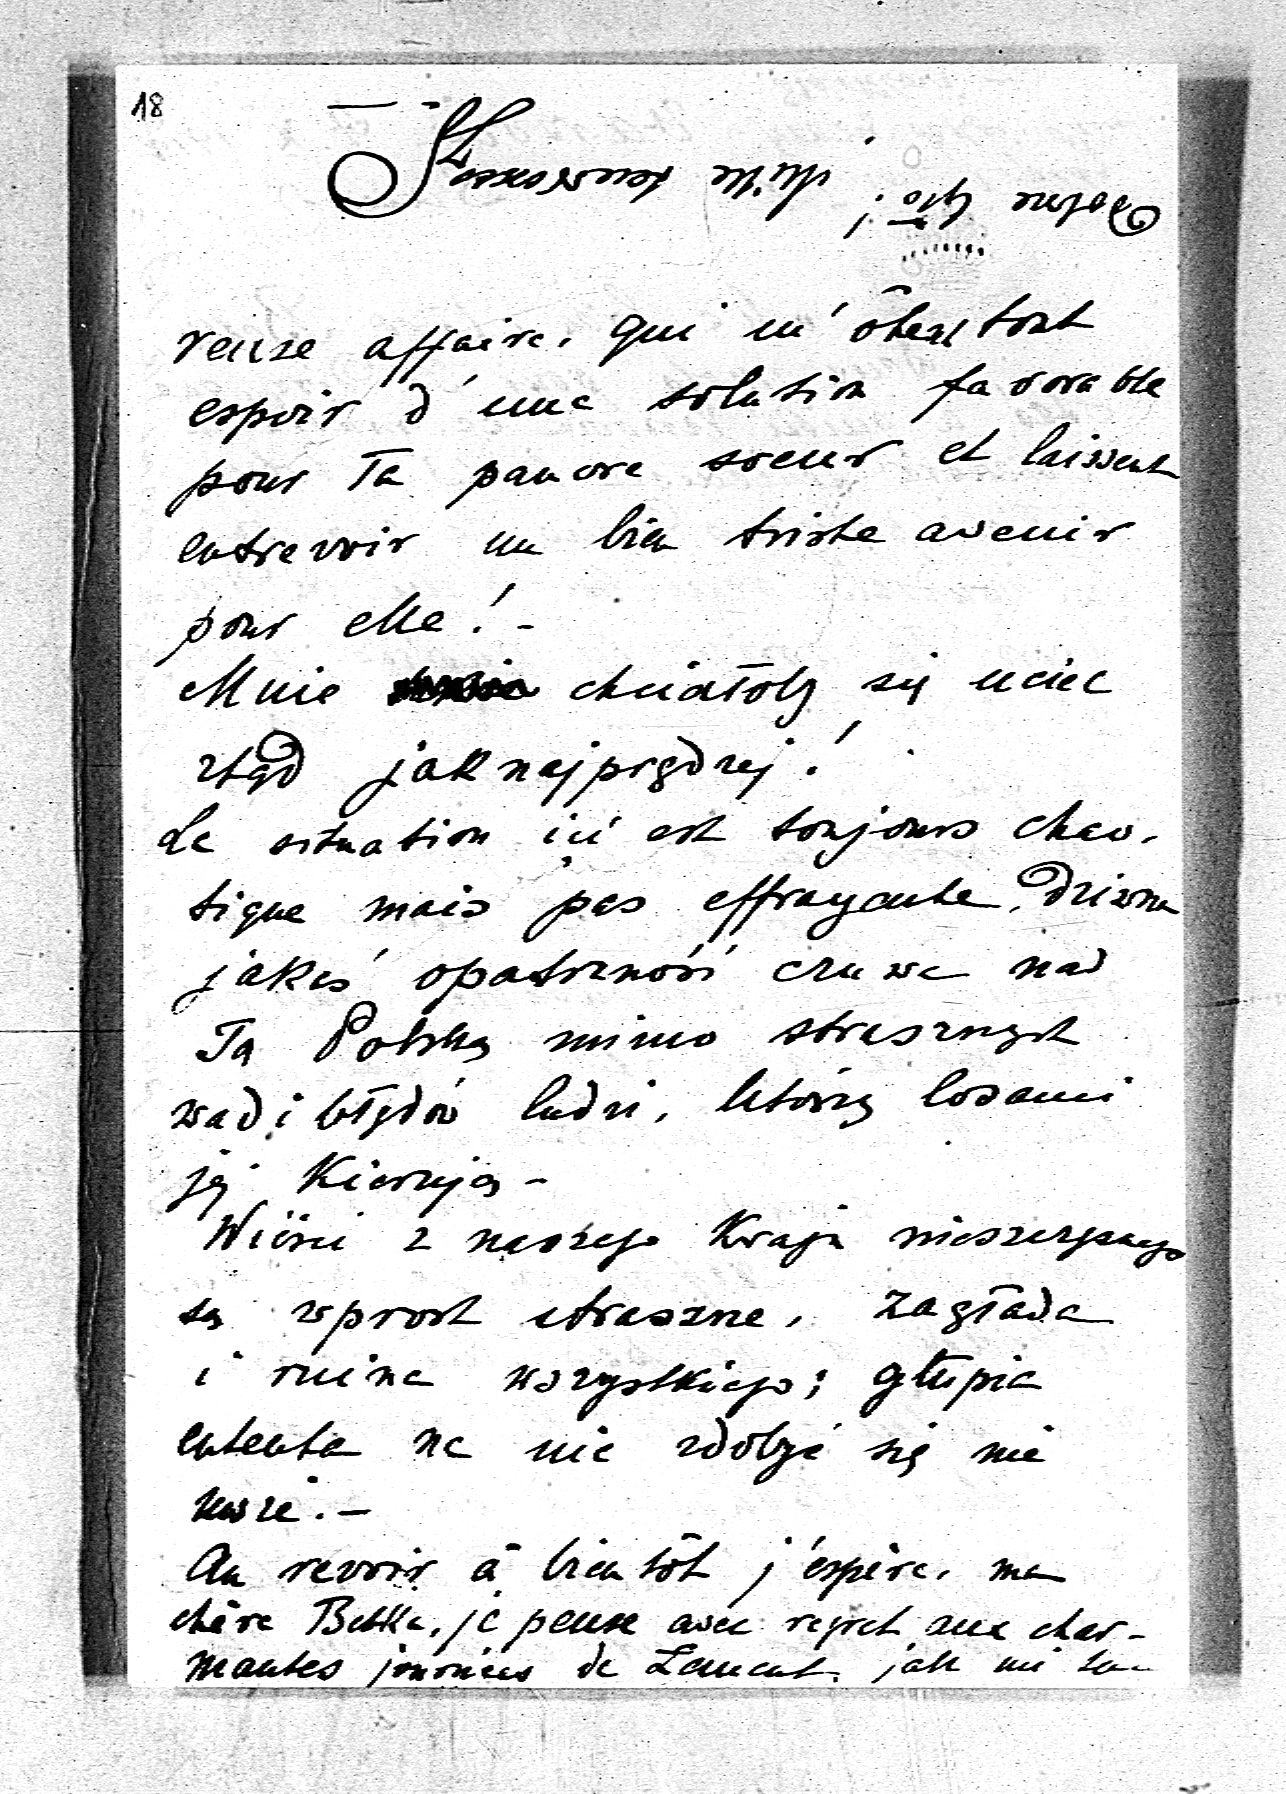 18
dobre było! Mille tendresses
reuse affaire, qui m'ôtent tout
espoir d'une solution favorable
pour Ta pauvre soeur et laissent
entrevoir un bien triste avenir
pour elle! -
Mnie chciałoby się uciec
ztąd jaknajprędzej!
La situation ici est toujours chao-
tique mais pas effrayante, dziwna
jakaś opatrzność czuwa nad
Tą Polską mimo strasznych
wad i błędów ludzi, którzy losami
jej kierują -
Wieści z naszego Kraju nieszczęsnego
są wprost straszne, zagłada
i ruina wszystkiego; głupia
ententa na nic zdobyć się nie
może. -
Au revoir à bientôt j'espère, ma
chère Betka, je pense avec regret aux char-
mantes journées de Łańcut, jak mi tam